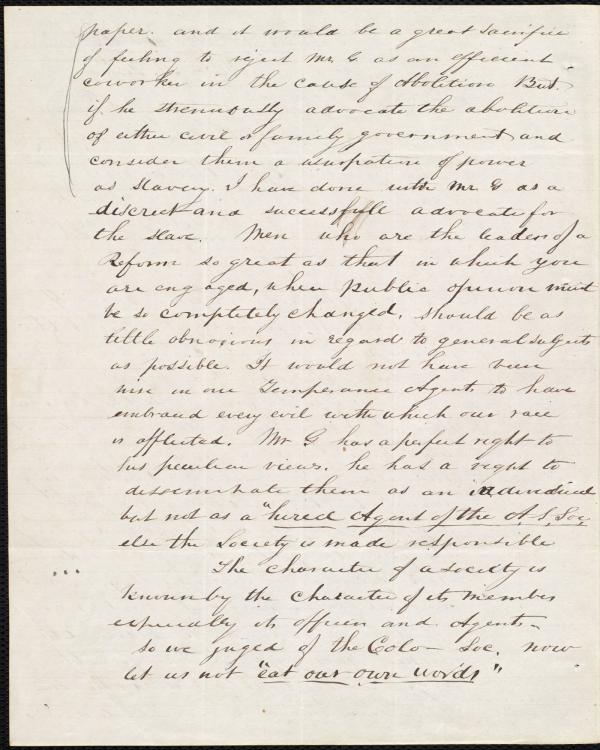 paper. and it would be a great sacrifice
of feeling to reject Mr G as an efficient
coworker in the cause of Abolition But.
if he strenuously advocate the abolition
of either civil or family government and
consider them a usurpation of power
as Slavery. I have done with Mr G as a
discreet and successfull advocate for
the slave. Men who are the leaders of a
Reform so great as that in which you
are engaged, when public opinion must
be so completely changed, should be as
little obnoxious in regard to general subjects
as possible. It would not have been
wise in our Temperance Agents to have
embraced every evil with which our race
is afflicted. Mr G has a perfect right to
his peculiar views. he has a right to
disseminate them as an individual
but not as a "hired Agent of the A. S. Soc
else the Society is made responsible
The character of a society is
known by the character of its member
especially its officers and Agents—
So we juged of the Colo— Soc. now
let us not "eat our own words"